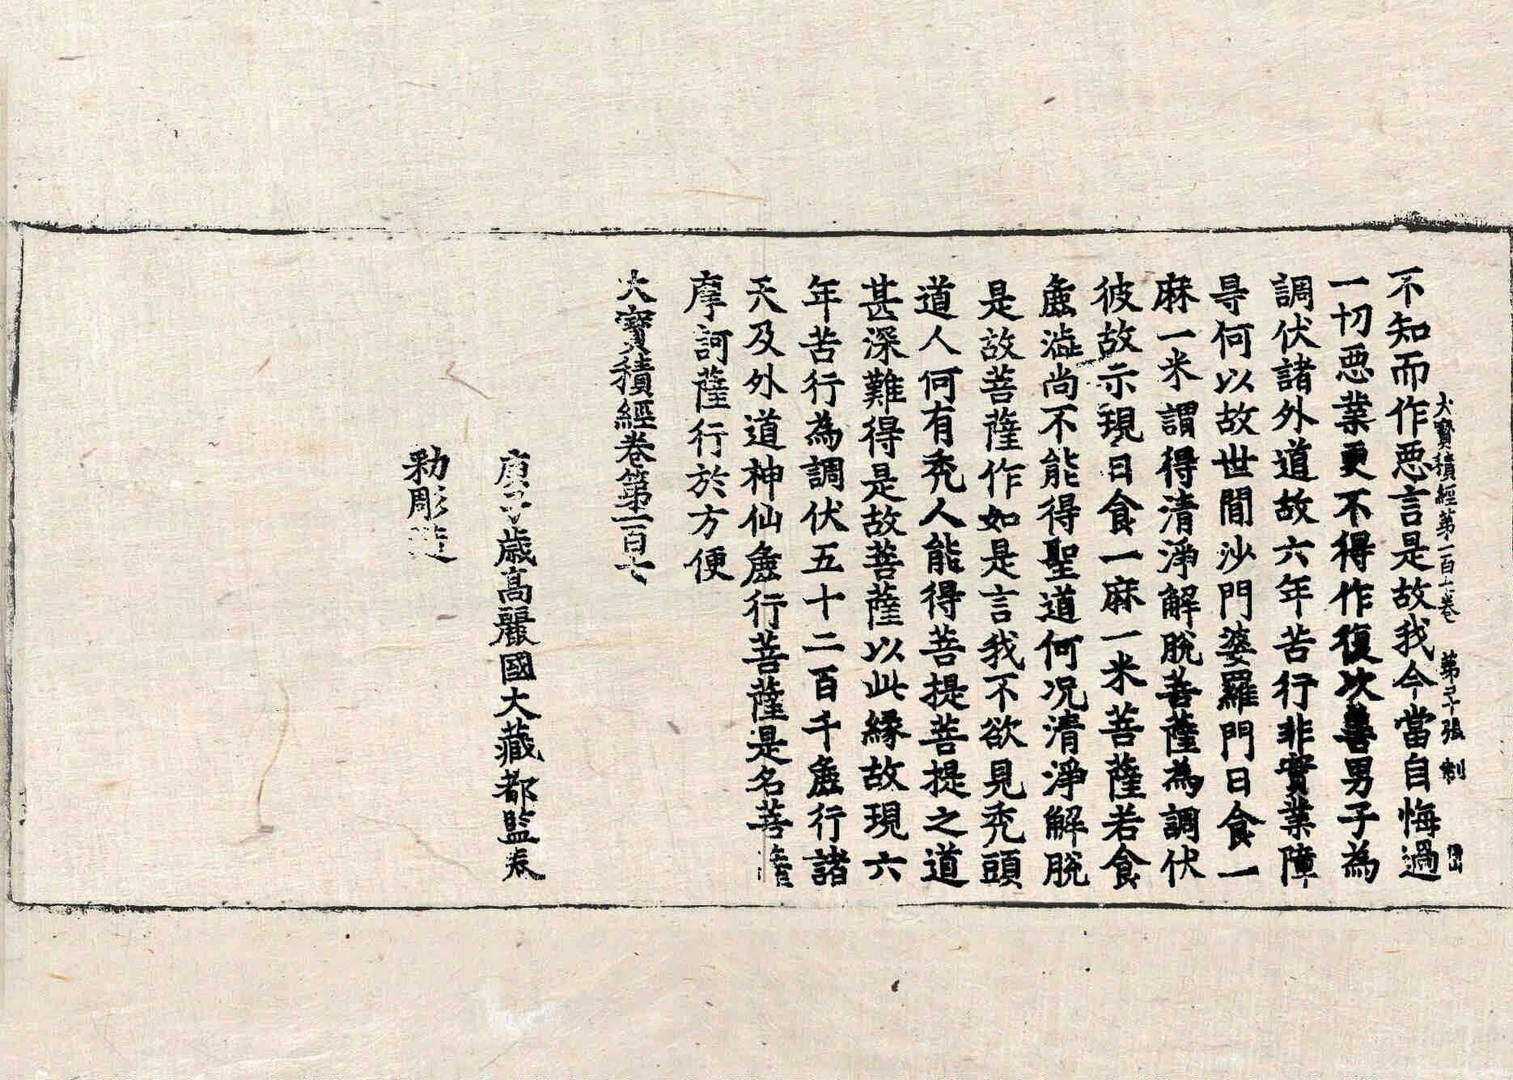 大寶積經第一百七卷 第二十張 制
不知而作惡言是故我今當自悔過
一切惡業更不得作復次善男子為
調伏諸外道故六年苦行非實業障
㝵何以故世間沙門婆羅門日食一
麻一米謂得清淨解脫菩薩為調伏
彼故示現日食一麻一米菩薩若食
麁澁尚不能得聖道何況清淨解脫
是故菩薩作如是言我不欲見禿頭
道人何有禿人能得菩提菩提之道
甚深難得是故菩薩以此緣故現六
年苦行為調伏五十二百千麁行諸
天及外道神仙麁行菩薩是名菩薩
摩訶薩行於方便
大寶積經卷第一百七
庚子歲高麗國大藏都監奉
勑彫造